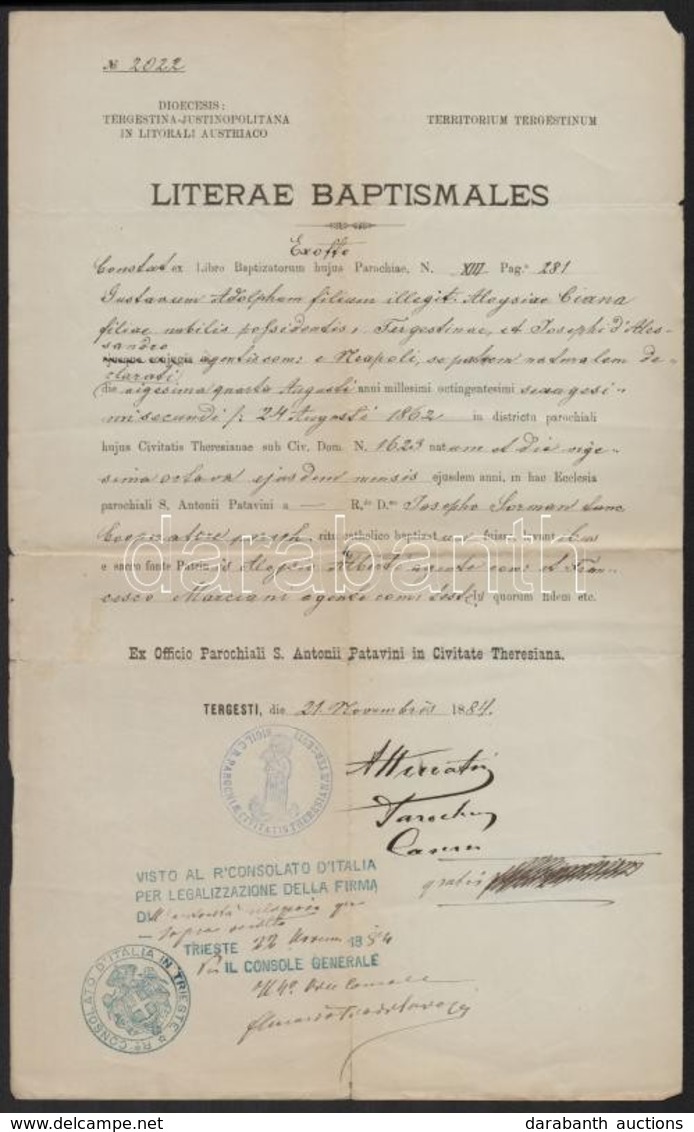 № 2022
DIOECESIS:
TERGESTINA-JUSTINOPOLITANA
IN LITORALI AUSTRIACO
TERRITORIUM TERGESTINUM
LITERAE BAPTISMALES
Exoffo
Constat ex Libro Baptizatorum hujus Parochiae, N. XIII Pag.ª 281
Gustavum Adolphum filium illegit. Aloysiae Ciana
filiae nobilis possidentis, Tergestinae, et Josephi d'Ales-
sandro
ejusque conjugis agentis com: e Neapoli, se patrem naturalem de-
clarati
die vigesima quarta Augusti anni millesimi octingentesimi sexagesi-
mi secundi /: 24 Augusti 1862 in districtu parochiali
hujus Civitatis Theresianae sub Civ. Dom. N. 1623 natum et die vige-
sima octava ejusdem mensis ejusdem anni, in hac Ecclesia
parochiali S. Antonii Patavini a — R.do D.no Josepho Surman tunc
Cooperatore paroch. ritu catholico baptizatum fuisse, levantibus
e sacro fonte Patrinis Aloysio Alberti agente com: et Fran-
cesco Marciani agente com: testes In quorum fidem etc.
Ex Officio Parochiali S. Antonii Patavini in Civitate Theresiana.
TERGESTI, die 21 Novembris 1884.
Parochus
gratis
VISTO AL R° CONSOLATO D'ITALIA
PER LEGALIZZAZIONE DELLA FIRMA
DI
TRIESTE 22 1884
IL CONSOLE GENERALE
R° CONSOLATO D'ITALIA IN TRIESTE
darabanth
darabanth.com
darabanth auctions